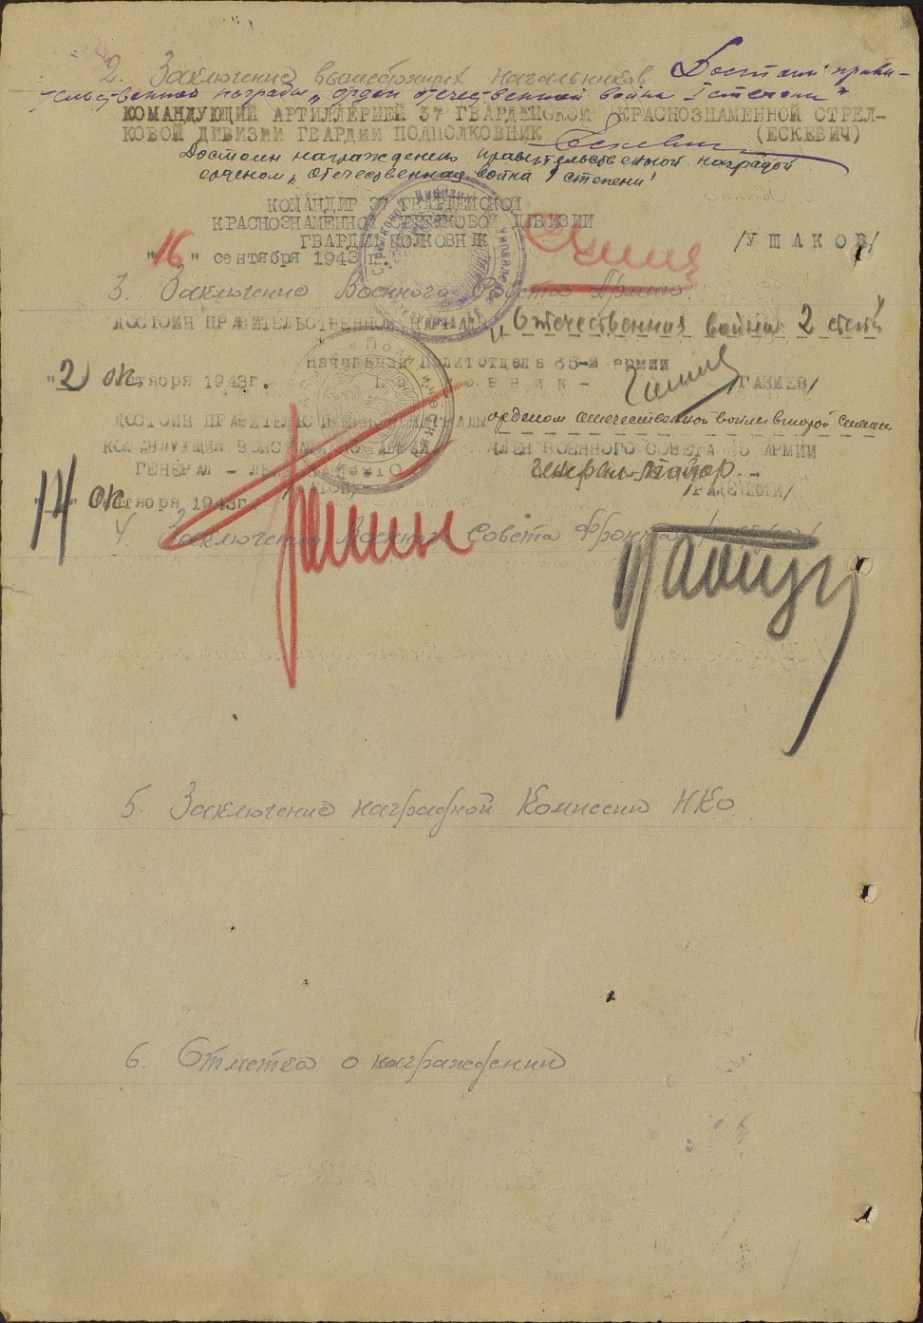 2. Заключение вышестоящих начальников Достоин прави-
тельственной награды „орден отечественной война I степени"
КОМАНДУЮЩИЙ АРТИЛЛЕРИЕЙ 37 ГВАРДЕЙСКОЙ КРАСНОЗНАМЕННОЙ СТРЕЛ-
КОВОЙ ДИВИЗИИ ГВАРДИИ ПОДПОЛКОВНИК (ЕСКЕВИЧ)
Достоин награждению правительственной наградой
орденом „Отечественная война 1 степени"
КОМАНДИР 37 ГВАРДЕЙСКОЙ
КРАСНОЗНАМЕННОЙ СТРЕЛКОВОЙ ДИВИЗИИ
ГВАРДИИ ПОЛКОВНИК /УШАКОВ/
"16" сентября 1943 г.
3. Заключение Военного Совета Армии
ДОСТОИН ПРАВИТЕЛЬСТВЕННОЙ НАГРАДЫ „Отечественная война 2 степ"
Начальник Политотдела 65-й армии
"2" ок тября 1943г. Полковник - /ГАНИЕВ/
ДОСТОИН ПРАВИТЕЛЬСТВЕННОЙ НАГРАДЫ орденом отечественной войны второй степени
КОМАНДУЮЩИЙ ВОЙСКАМИ 65 АРМИИ ЧЛЕН ВОЕННОГО СОВЕТА 65 АРМИИ
ГЕНЕРАЛ - генерал-майор
/РАДЕЦКИЙ/
"14" ок тября 1943г.
4. Заключение Военного Совета Фронта
5. Заключение наградной Комиссии НКО
6. Отметка о награждении